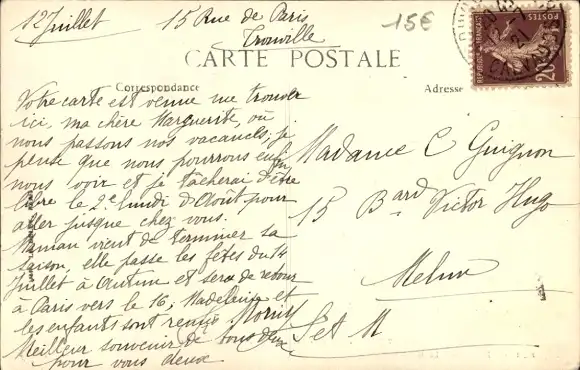 12 Juillet 15 Rue de Paris
Trouville
15€
CARTE POSTALE
Correspondance
Adresse
Votre carte est venue me trouver
ici, ma chère Marguerite, où
nous passons nos vacances; je
pense que nous pourrons enfin
nous voir et je tâcherai d'être
libre le 2e lundi d'Août pour
aller jusque chez vous.
Maman vient de terminer sa
saison, elle passe les fêtes du 14
Juillet à Autun et sera de retour
à Paris vers le 16; Madeleine et
les enfants sont
Meilleur souvenir de tous deux
pour vous deux
Madame C Guignon
15 Bard Victor Hugo
Melun
S et M
REPUBLIQUE FRANÇAISE
POSTES
25
21
CALVADOS